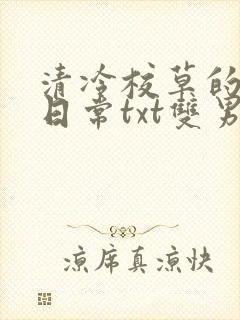 清冷校草的
日常txt雙男
涼席真涼快